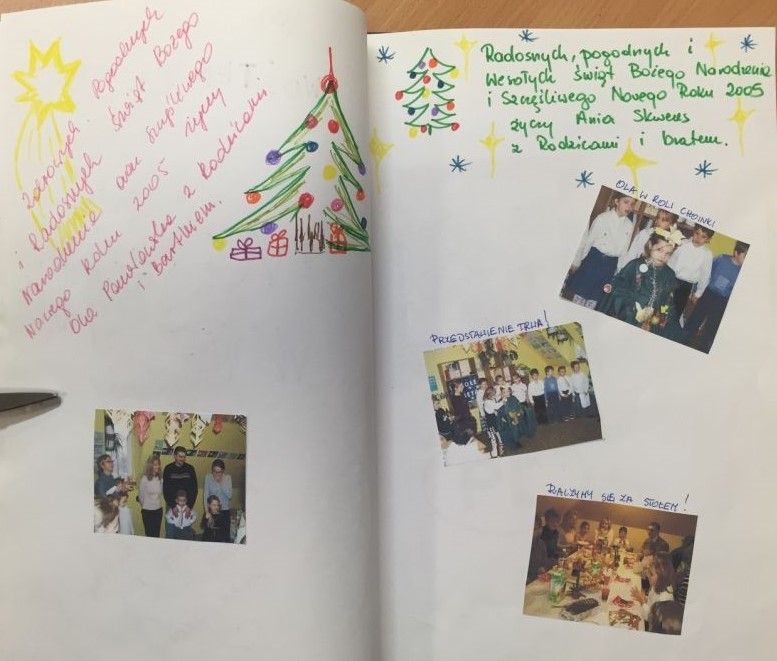 Zdrowych, Pogodnych
i Radosnych Świąt Bożego
Narodzenia oraz szczęśliwego
Nowego Roku 2005 życzy
Ola Pawłowska z Rodzicami
i Bartkiem.
Radosnych, pogodnych i
Wesołych Świąt Bożego Narodzenia
i Szczęśliwego Nowego Roku 2005
życzy Ania Skwers
z Rodzicami i bratem.
OLA W ROLI CHOINKI
PRZEDSTAWIENIE TRWA!
RACZYMY SIĘ ZA STOŁEM!